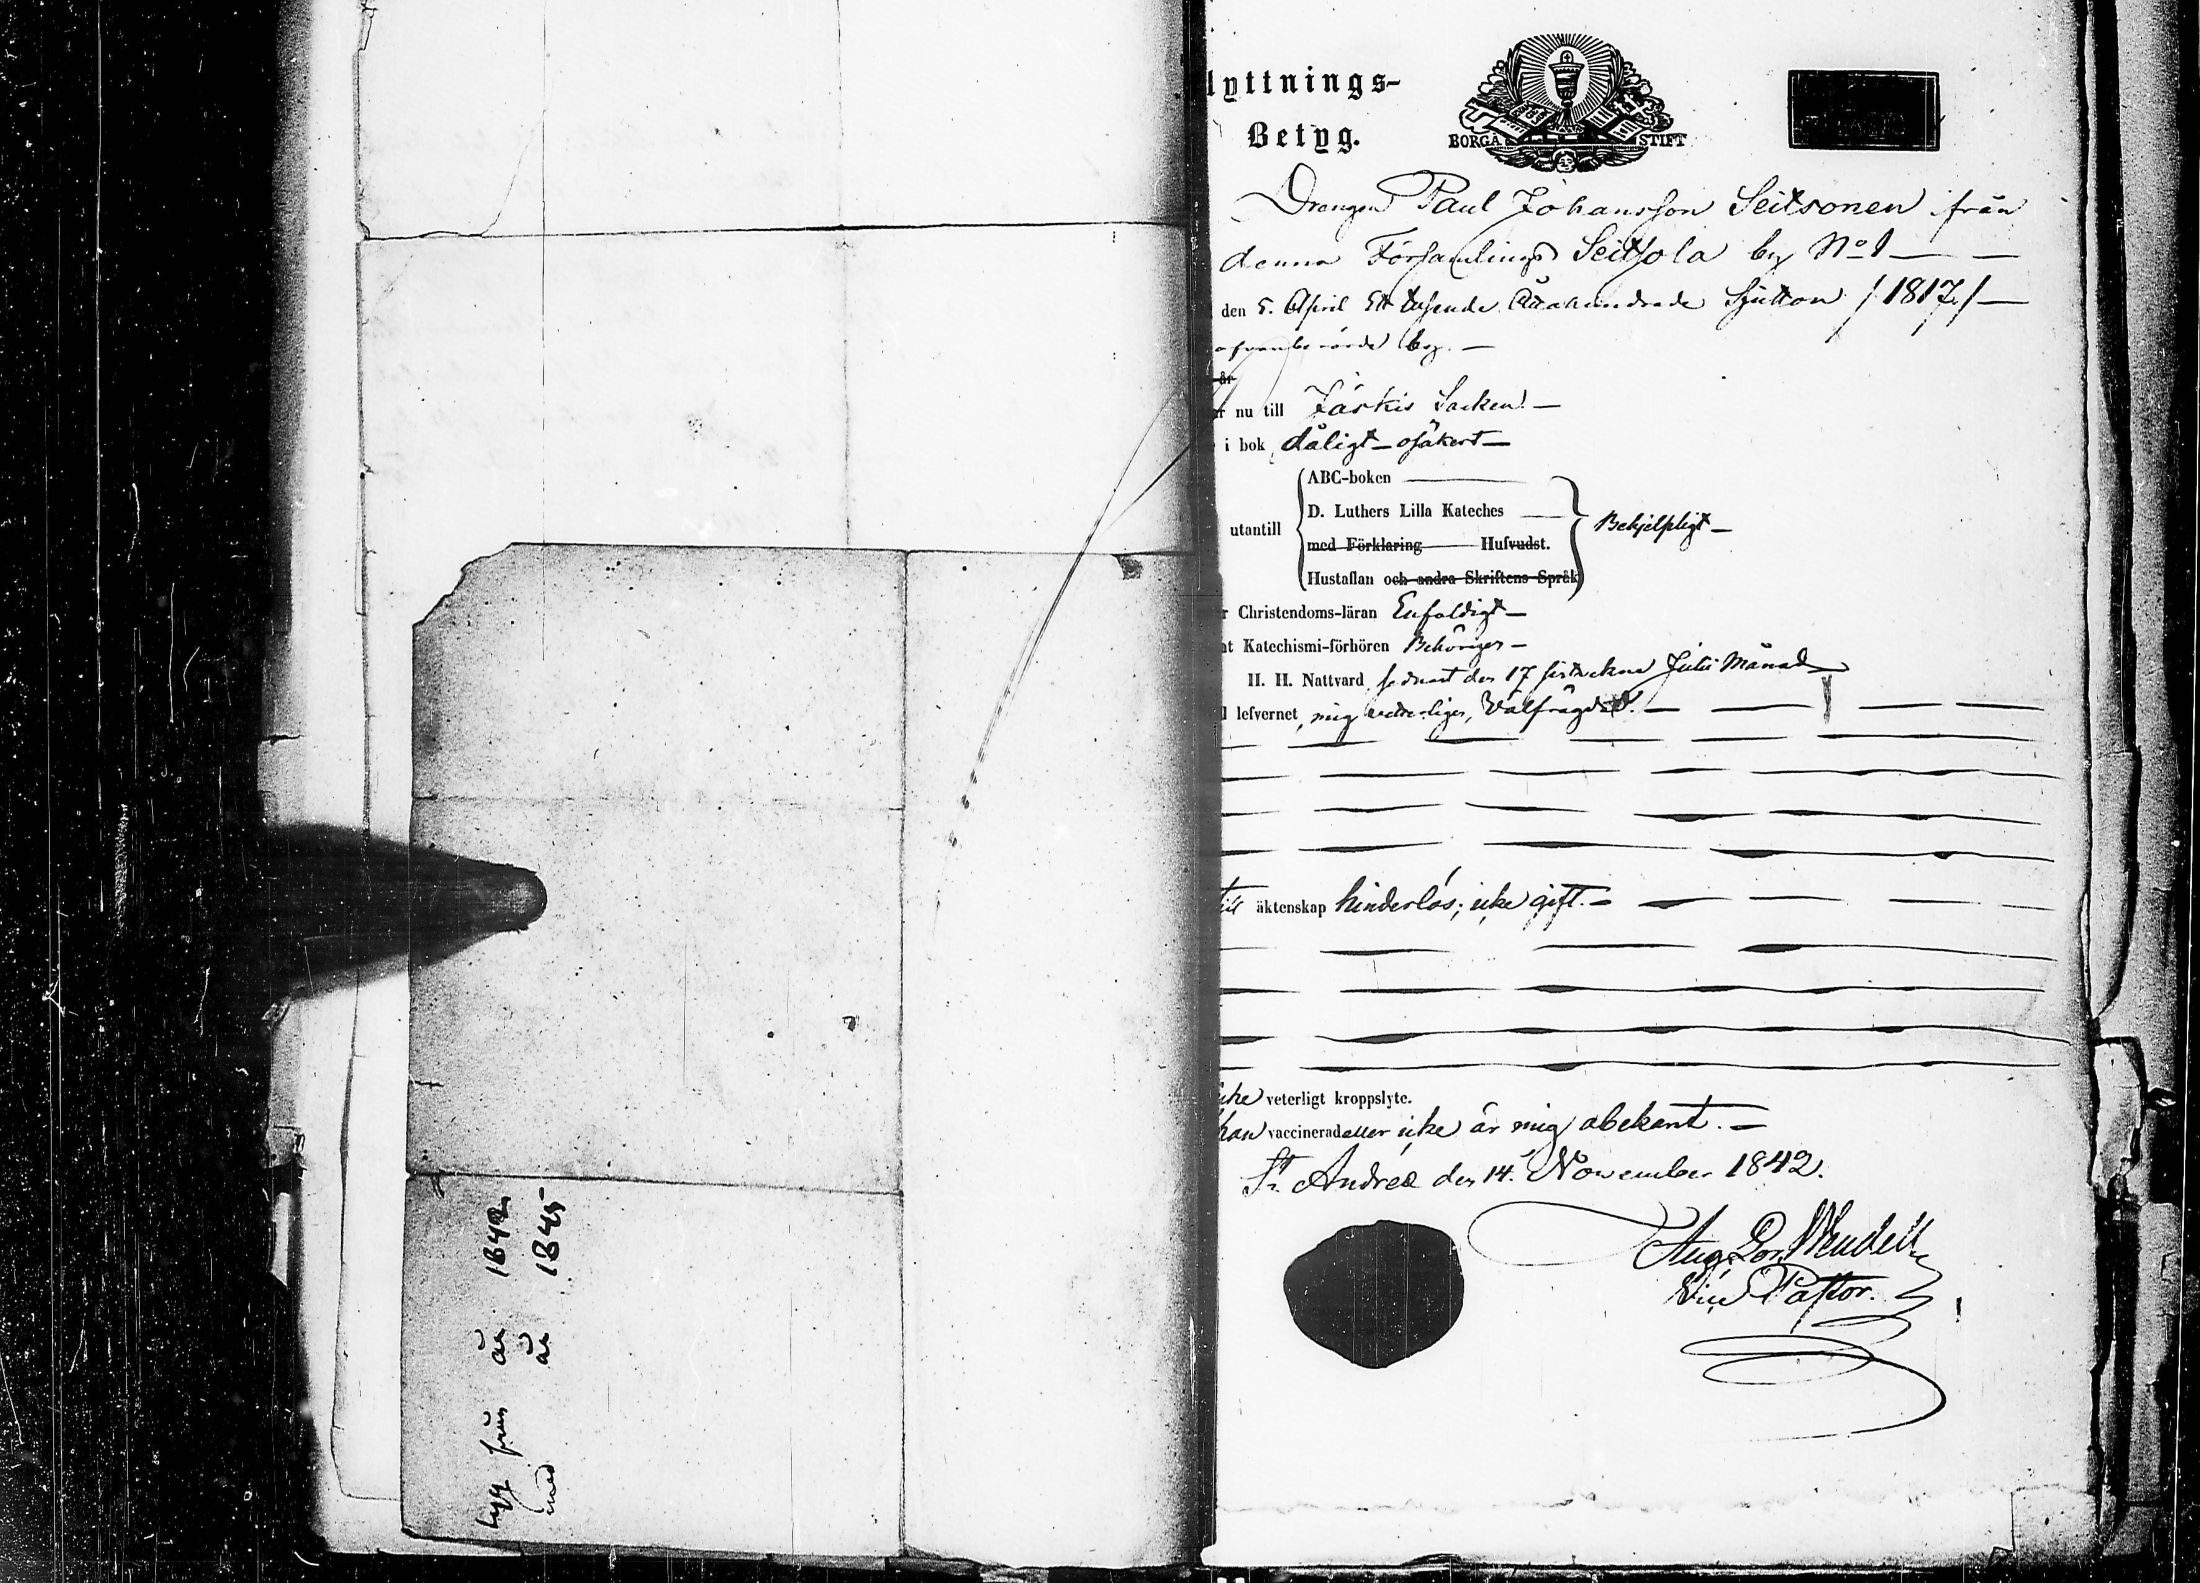 lyttnings-
Betyg.
BORGÅ STIFT
Drengen Paul Johansson Seitsonen från
denna Församlings Seitsola by No 1
den 5. April Ett tusende Åttahundrade Sjutton /1817./
ofvanberörde by.
år
r nu till Jäskis Socken.
i bok dåligt osäkert
ABC-boken
D. Luthers Lilla Kateches
utantill Behjelpligt
med Förklaring Hufvudst.
Hustaflan och andra Skriftens Språk
r Christendoms-läran Enfaldigt
t Katechismi-förhören Behörigen
H. H. Nattvard sednast den 17 sistvekne Julii Månad
lefvernet, mig veterligen, Välfrägdad.
till äktenskap hinderlös; icke gift.
icke veterligt kroppslyte.
han vaccinerad eller icke är mig obekant.
St Andreæ den 14. November 1842.
Aug. Wendell
Vice Pastor.
från år 1842
med år 1845